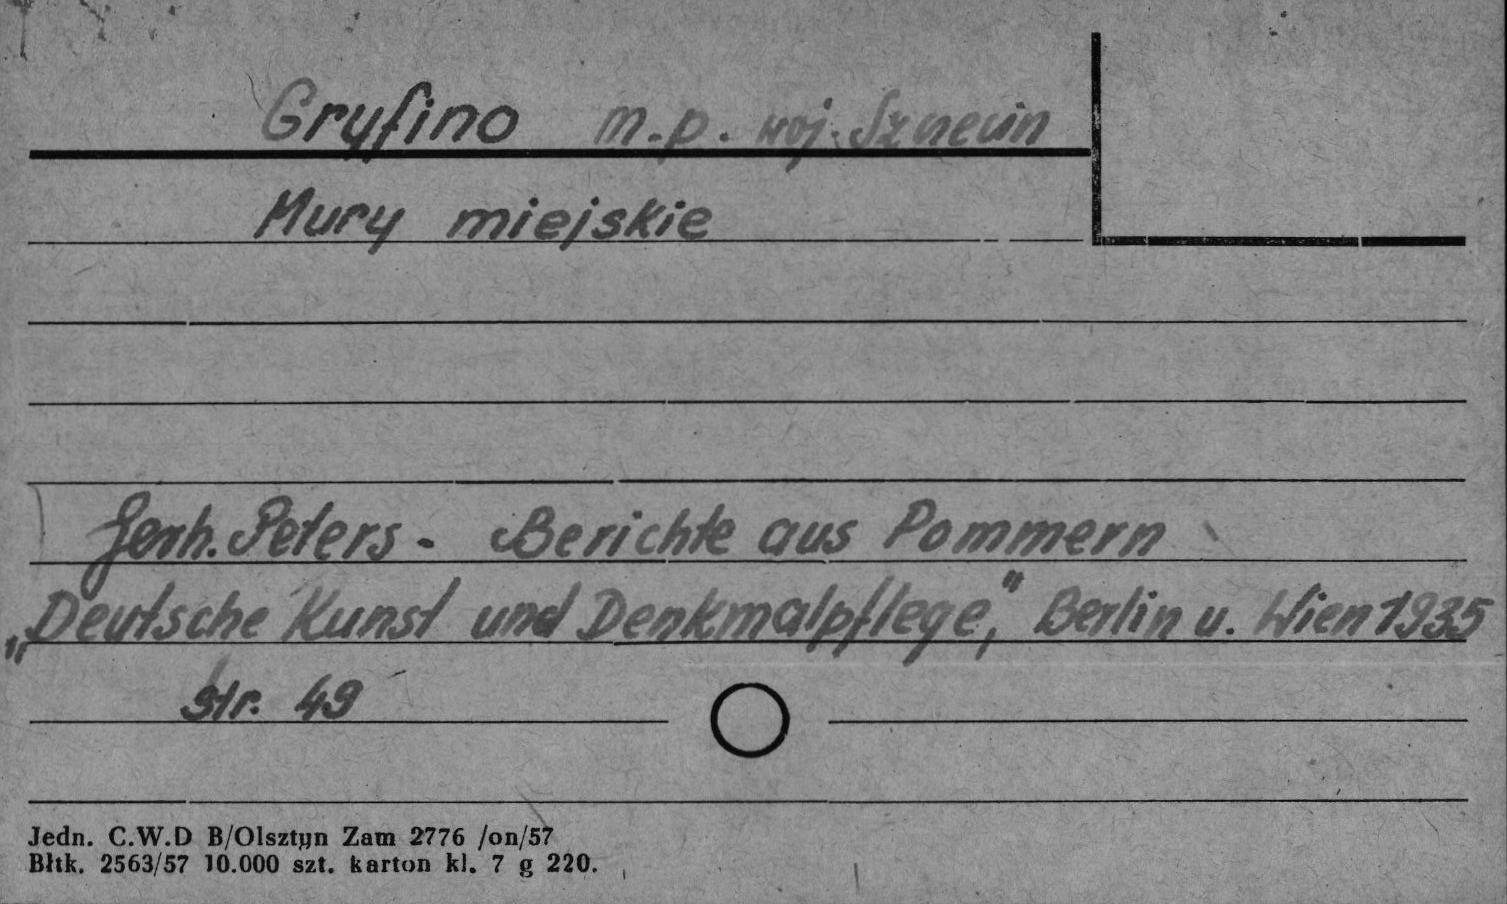 Gryfino m.p. woj. Szczecin
Mury miejskie
Gerh. Peters - Berichte aus Pommern
„Deutsche Kunst und Denkmalpflege," Berlin u. Wien 1935
str. 49
Jedn. C.W.D B/Olsztyn Zam 2776 /on/57
Błtk. 2563/57 10.000 szt. karton kl. 7 g 220.